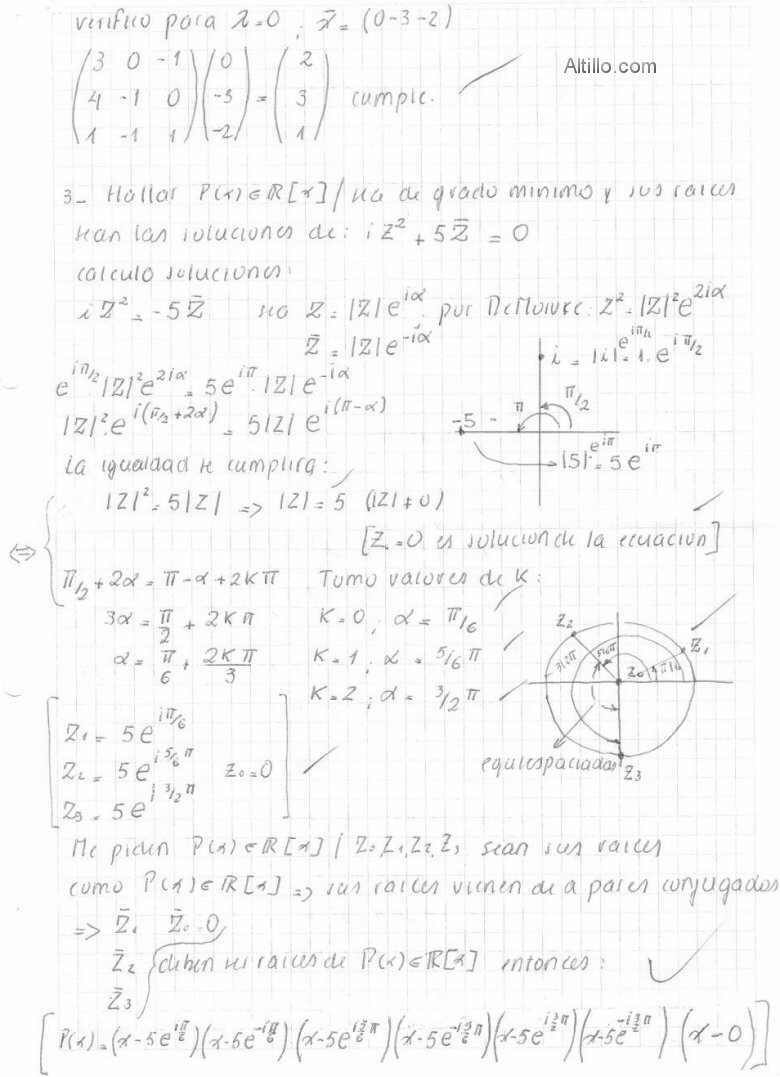 verifico para λ=0 ; x̄ = (0 -3 -2)
Altillo.com
(3 0 -1) (0) (2)
(4 -1 0) (-3) = (3) cumple.
(1 -1 1) (-2) (1)
3_ Hallar P(x) ∈ ℝ[x] / sea de grado minimo y sus raices
sean las soluciones de: i z² + 5 z̄ = 0
calculo soluciones:
i z² = -5 z̄ sea z = |z| e^{iα} por DeMoivre: z² = |z|² e^{2iα}
z̄ = |z| e^{-iα}
i = |i| e^{iπ/2} = 1. e^{iπ/2}
e^{iπ/2} |z|² e^{2iα} = 5 e^{iπ}. |z| e^{-iα}
π π/2
|z|². e^{i(π/2+2α)} = 5|z| e^{i(π-α)}
-5
|5|. e^{iπ} = 5 e^{iπ}
La igualdad se cumplirá:
|z|² = 5|z| => |z| = 5 (|z| ≠ 0)
⇔ [z = 0 es solucion de la ecuacion]
π/2 + 2α = π - α + 2kπ Tomo valores de K:
3α = π/2 + 2kπ K=0 ; α = π/6
α = π/6 + 2kπ/3 K=1 ; α = 5/6 π
K=2 ; α = 3/2 π
z₂ z₁ z₀ z₃
3/2π 5/6π π/6
equiespaciadas
z₁ = 5 e^{iπ/6}
z₂ = 5 e^{i5/6π} z₀ = 0
z₃ = 5 e^{i3/2π}
Me piden P(x) ∈ ℝ[x] / z₀ z₁, z₂, z₃ sean sus raices
como P(x) ∈ ℝ[x] => sus raices vienen de a pares conjugados
=> z̄₁ z̄₀ = 0
z̄₂ deben ser raices de P(x) ∈ ℝ[x] entonces:
z̄₃
[P(x) = (x-5e^{iπ/6}) (x-5e^{-iπ/6}) (x-5e^{i5/6π}) (x-5e^{-i5/6π}) (x-5e^{i3/2π}) (x-5e^{-i3/2π}) . (x-0)]